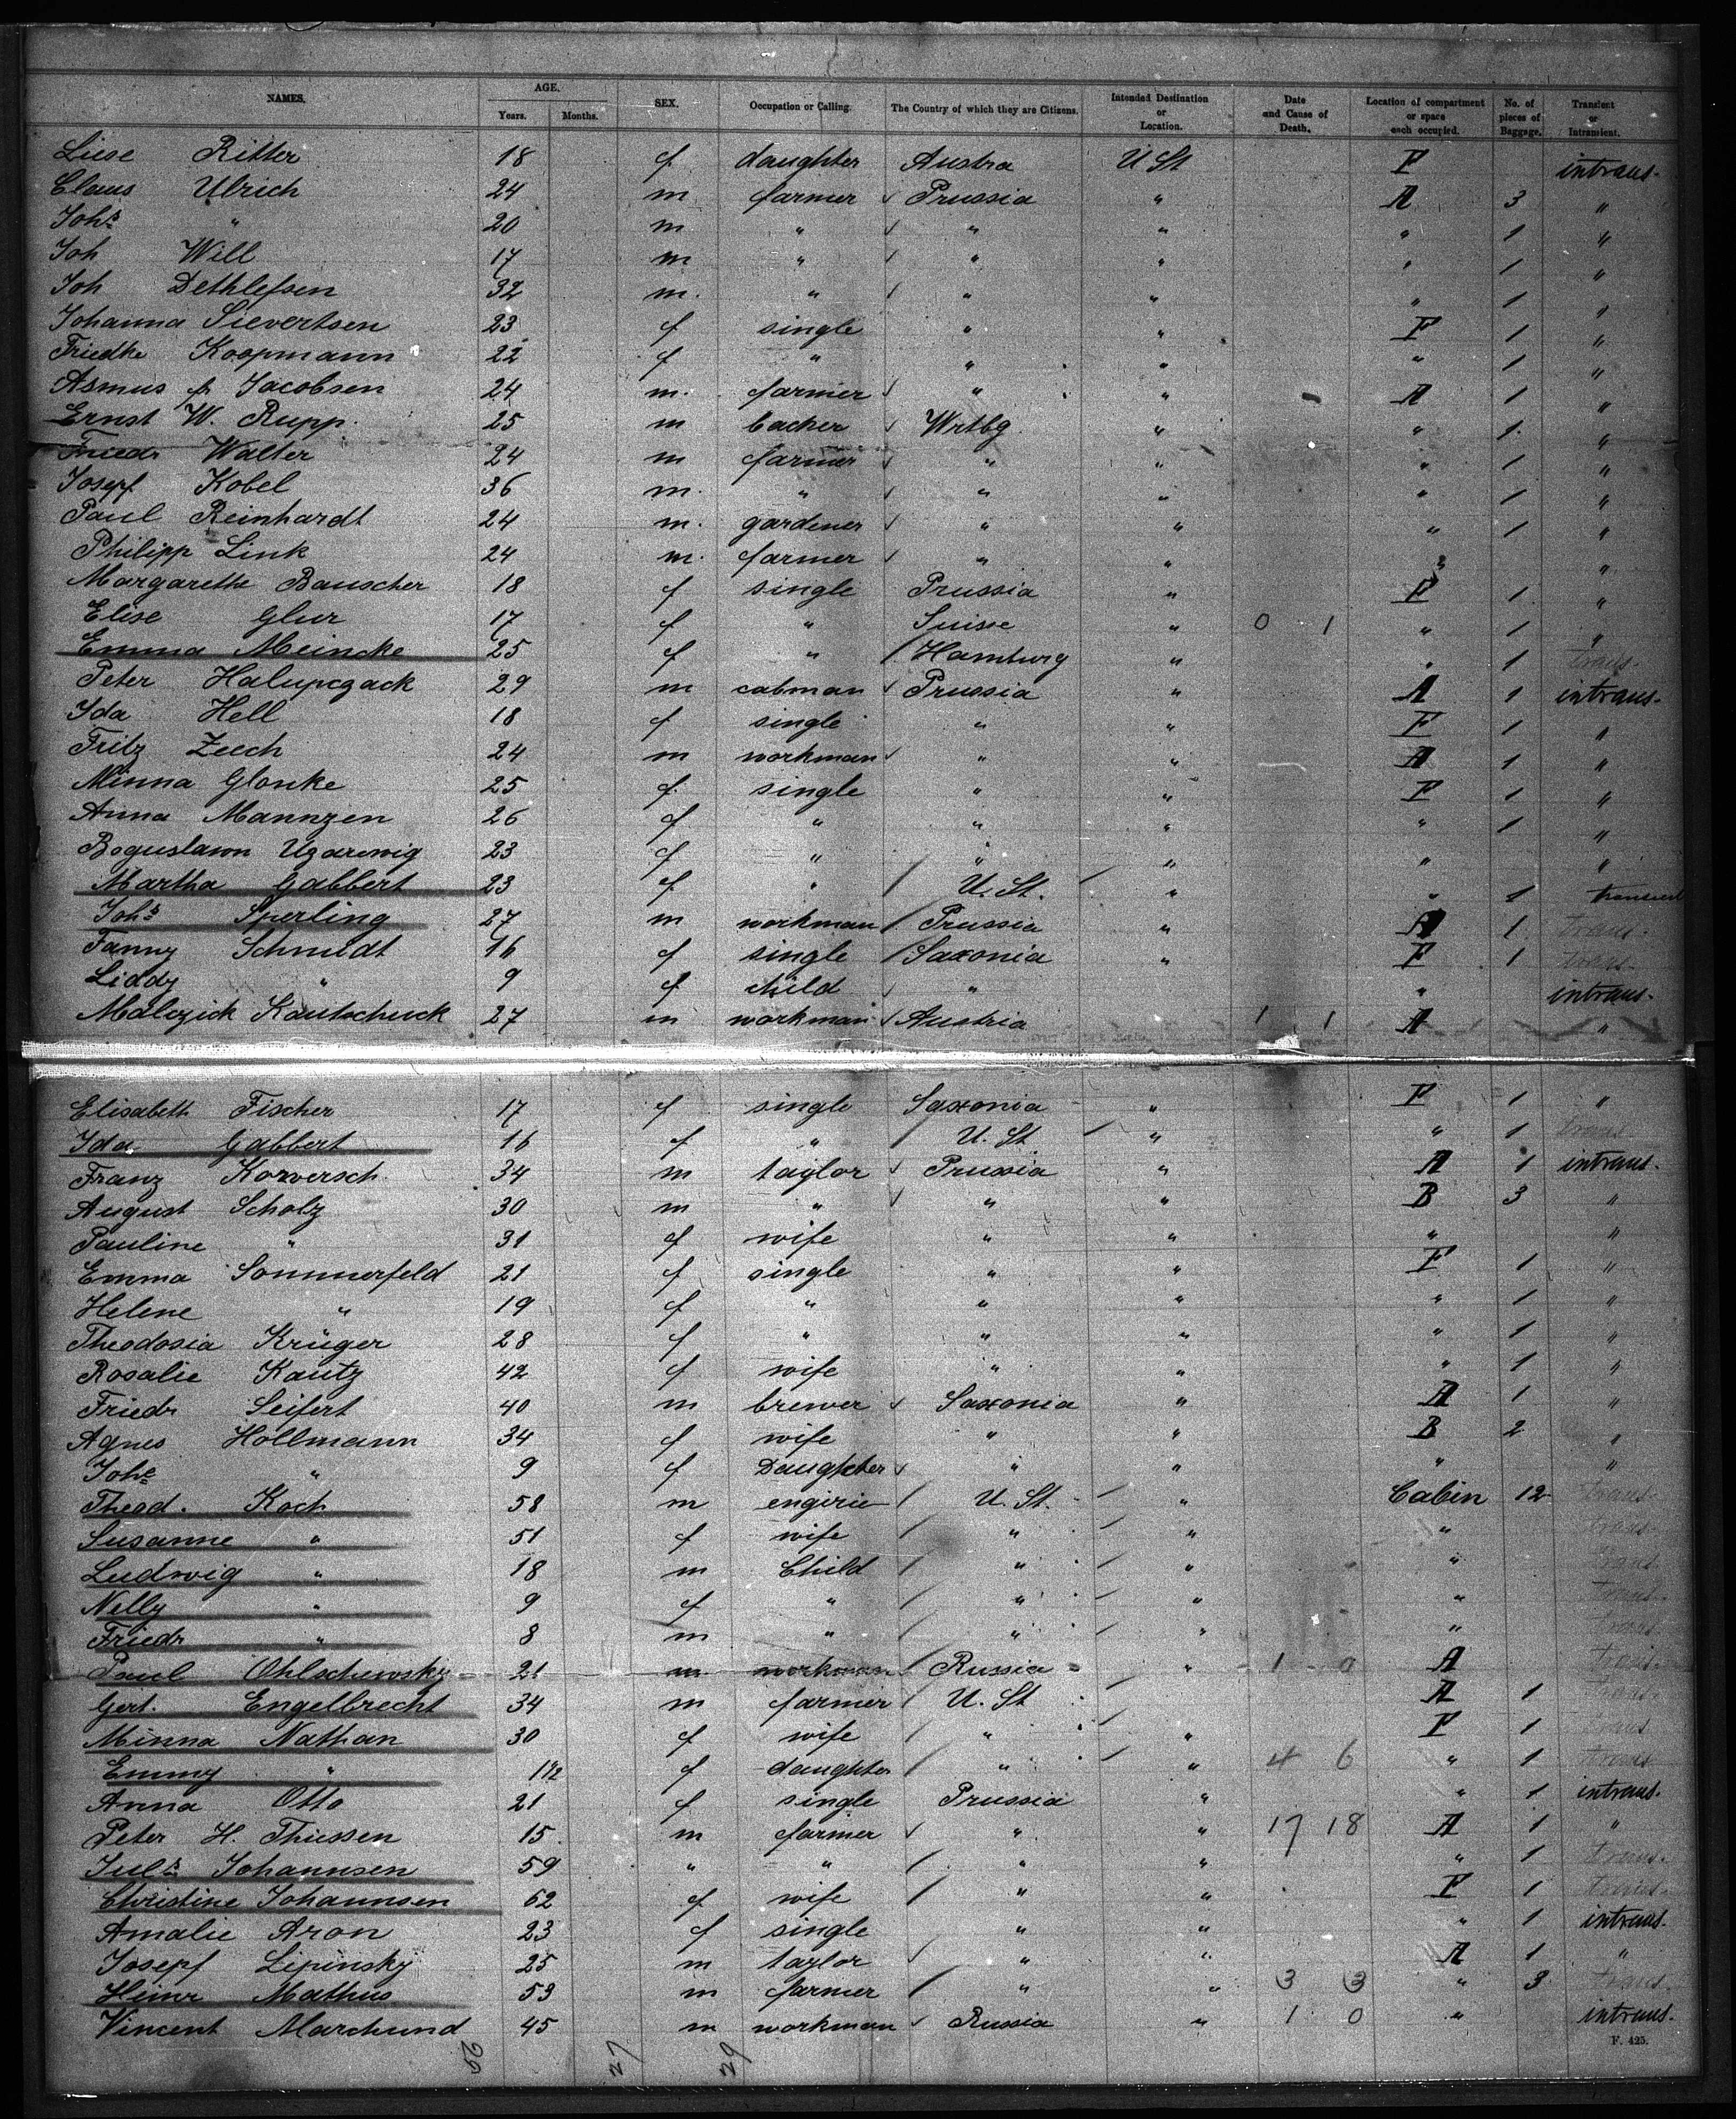 NAMES. AGE. Years. Months. SEX. Occupation or Calling. The Country of which they are Citizens. Intended Destination or Location. Date and Cause of Death. Location of compartment or space each occupied. No. of pieces of Baggage. Transient or Intransient.
Liese Ritter 18 f daughter Austra U St F intrans.
Claus Ulrich 24 m farmer Prussia " A 3 "
Johs " 20 m " " " " 1 "
Joh Will 17 m " " " " 1 "
Joh Dethlefsen 32 m. " " " " 1 "
Johanna Sievertsen 23 f single " " F 1 "
Friedke Koopmann 22 f " " " " 1 "
Asmus p Jacobsen 24 m. farmer " " A 1 "
Ernst W. Rupp. 25 m backer Wrtbg " " 1. "
Friedr Walter 24 m farmer " " " 1 "
Josepf Kobel 36 m. " " " " 1 "
Paul Reinhardt 24 m. gardener " " " 1 "
Philipp Link 24 m. farmer " " " "
Margarethe Bauscher 18 f single Prussia " F 1 "
Elise Glur 17 f " Suisse " 0 1 " 1 "
Emma Meincke 25 f " Hamburg " " 1 trans.
Peter Halupczack 29 m cabman Prussia " A 1 intrans.
Ida Hell 18 f single " " F 1 "
Fritz Zeech 24 m workman " " A 1 "
Minna Glonke 25 f. single " " F 1 "
Anna Mannzen 26 f " " " " 1 "
Boguslawn Ugarewig 23 f " " " " "
Martha Gabbert 23 f " U. St. " " 1 transient
Johs Sperling 27 m workman Prussia " A 1 trans.
Fanny Schmidt 16 f single Saxonia " F 1 trans.
Liddy " 9 f child " " intrans.
Malczick Kautschuck 27 m workman Austria 1 1 A "
Elisabeth Fischer 17 f single Saxonia " F 1 "
Ida Gabbert 16 f " U. St " " 1 trans.
Franz Korversch 34 m taylor Prussia " A 1 intrans.
August Scholz 30 m " " " B 3 "
Pauline " 31 f wife " " " "
Emma Sommerfeld 21 f single " " F 1 "
Helene " 19 f " " " " 1 "
Theodosia Krüger 28 f " " " " 1 "
Rosalie Kautz 42 f wife " " " 1 "
Friedr Seifert 40 m brewer Saxonia " A 1 "
Agnes Hollmann 34 f wife " " B 2 "
Johe " 9 f Daughter " " " "
Theod. Koch 58 m engirie U. St. " Cabin 12 trans.
Susanne " 51 f wife " " " trans
Ludwig " 18 m Child " " " trans.
Nelly " 9 f " " " " trans.
Friedr " 8 m " " " " trans.
Paul Ohlschewsky 21 m workman Russia " 1 0 A trans.
Gert. Engelbrecht 34 m farmer U. St A 1 trans.
Minna Nathan 30 f wife " " F 1 trans
Emmy " 1 1/2 f daughter " " 4 6 " 1 trans
Anna Otto 21 f single Prussia " " 1 intrans.
Peter H. Thiessen 15. m farmer " " 17 18 A 1 "
Juls Johannsen 59 " " " " " 1 trans.
Christine Johannsen 62 f wife " " F 1 trans.
Amalie Aron 23 f single " " " 1 intrans.
Josepf Lipinsky 25 m taylor " " A 1 "
Heinr Mathus 53 m farmer " " 3 3 " 3 trans.
Vincent Marchund 45 m workman Russia " 1 0 " intrans.
F. 425.
27 29